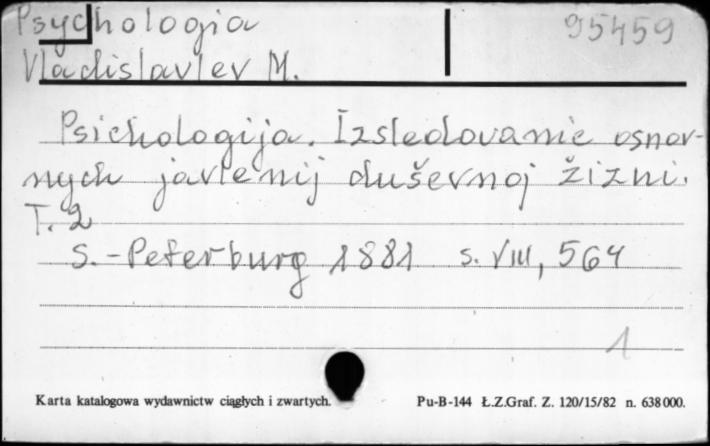 Psychologia 95459
Vladislavlev M.
Psichologija. Izsledovanie osnov-
nych javlenij duševnoj žizni.
T. 2
S.-Peterburg 1881 s. VIII, 564
1
Karta katalogowa wydawnictw ciągłych i zwartych. Pu-B-144 Ł.Z.Graf. Z. 120/15/82 n. 638 000.